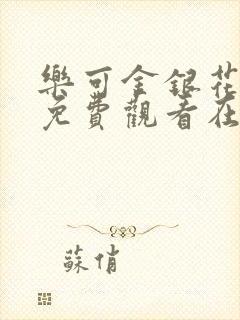 樂可金銀花
免費觀看在
蘇俏